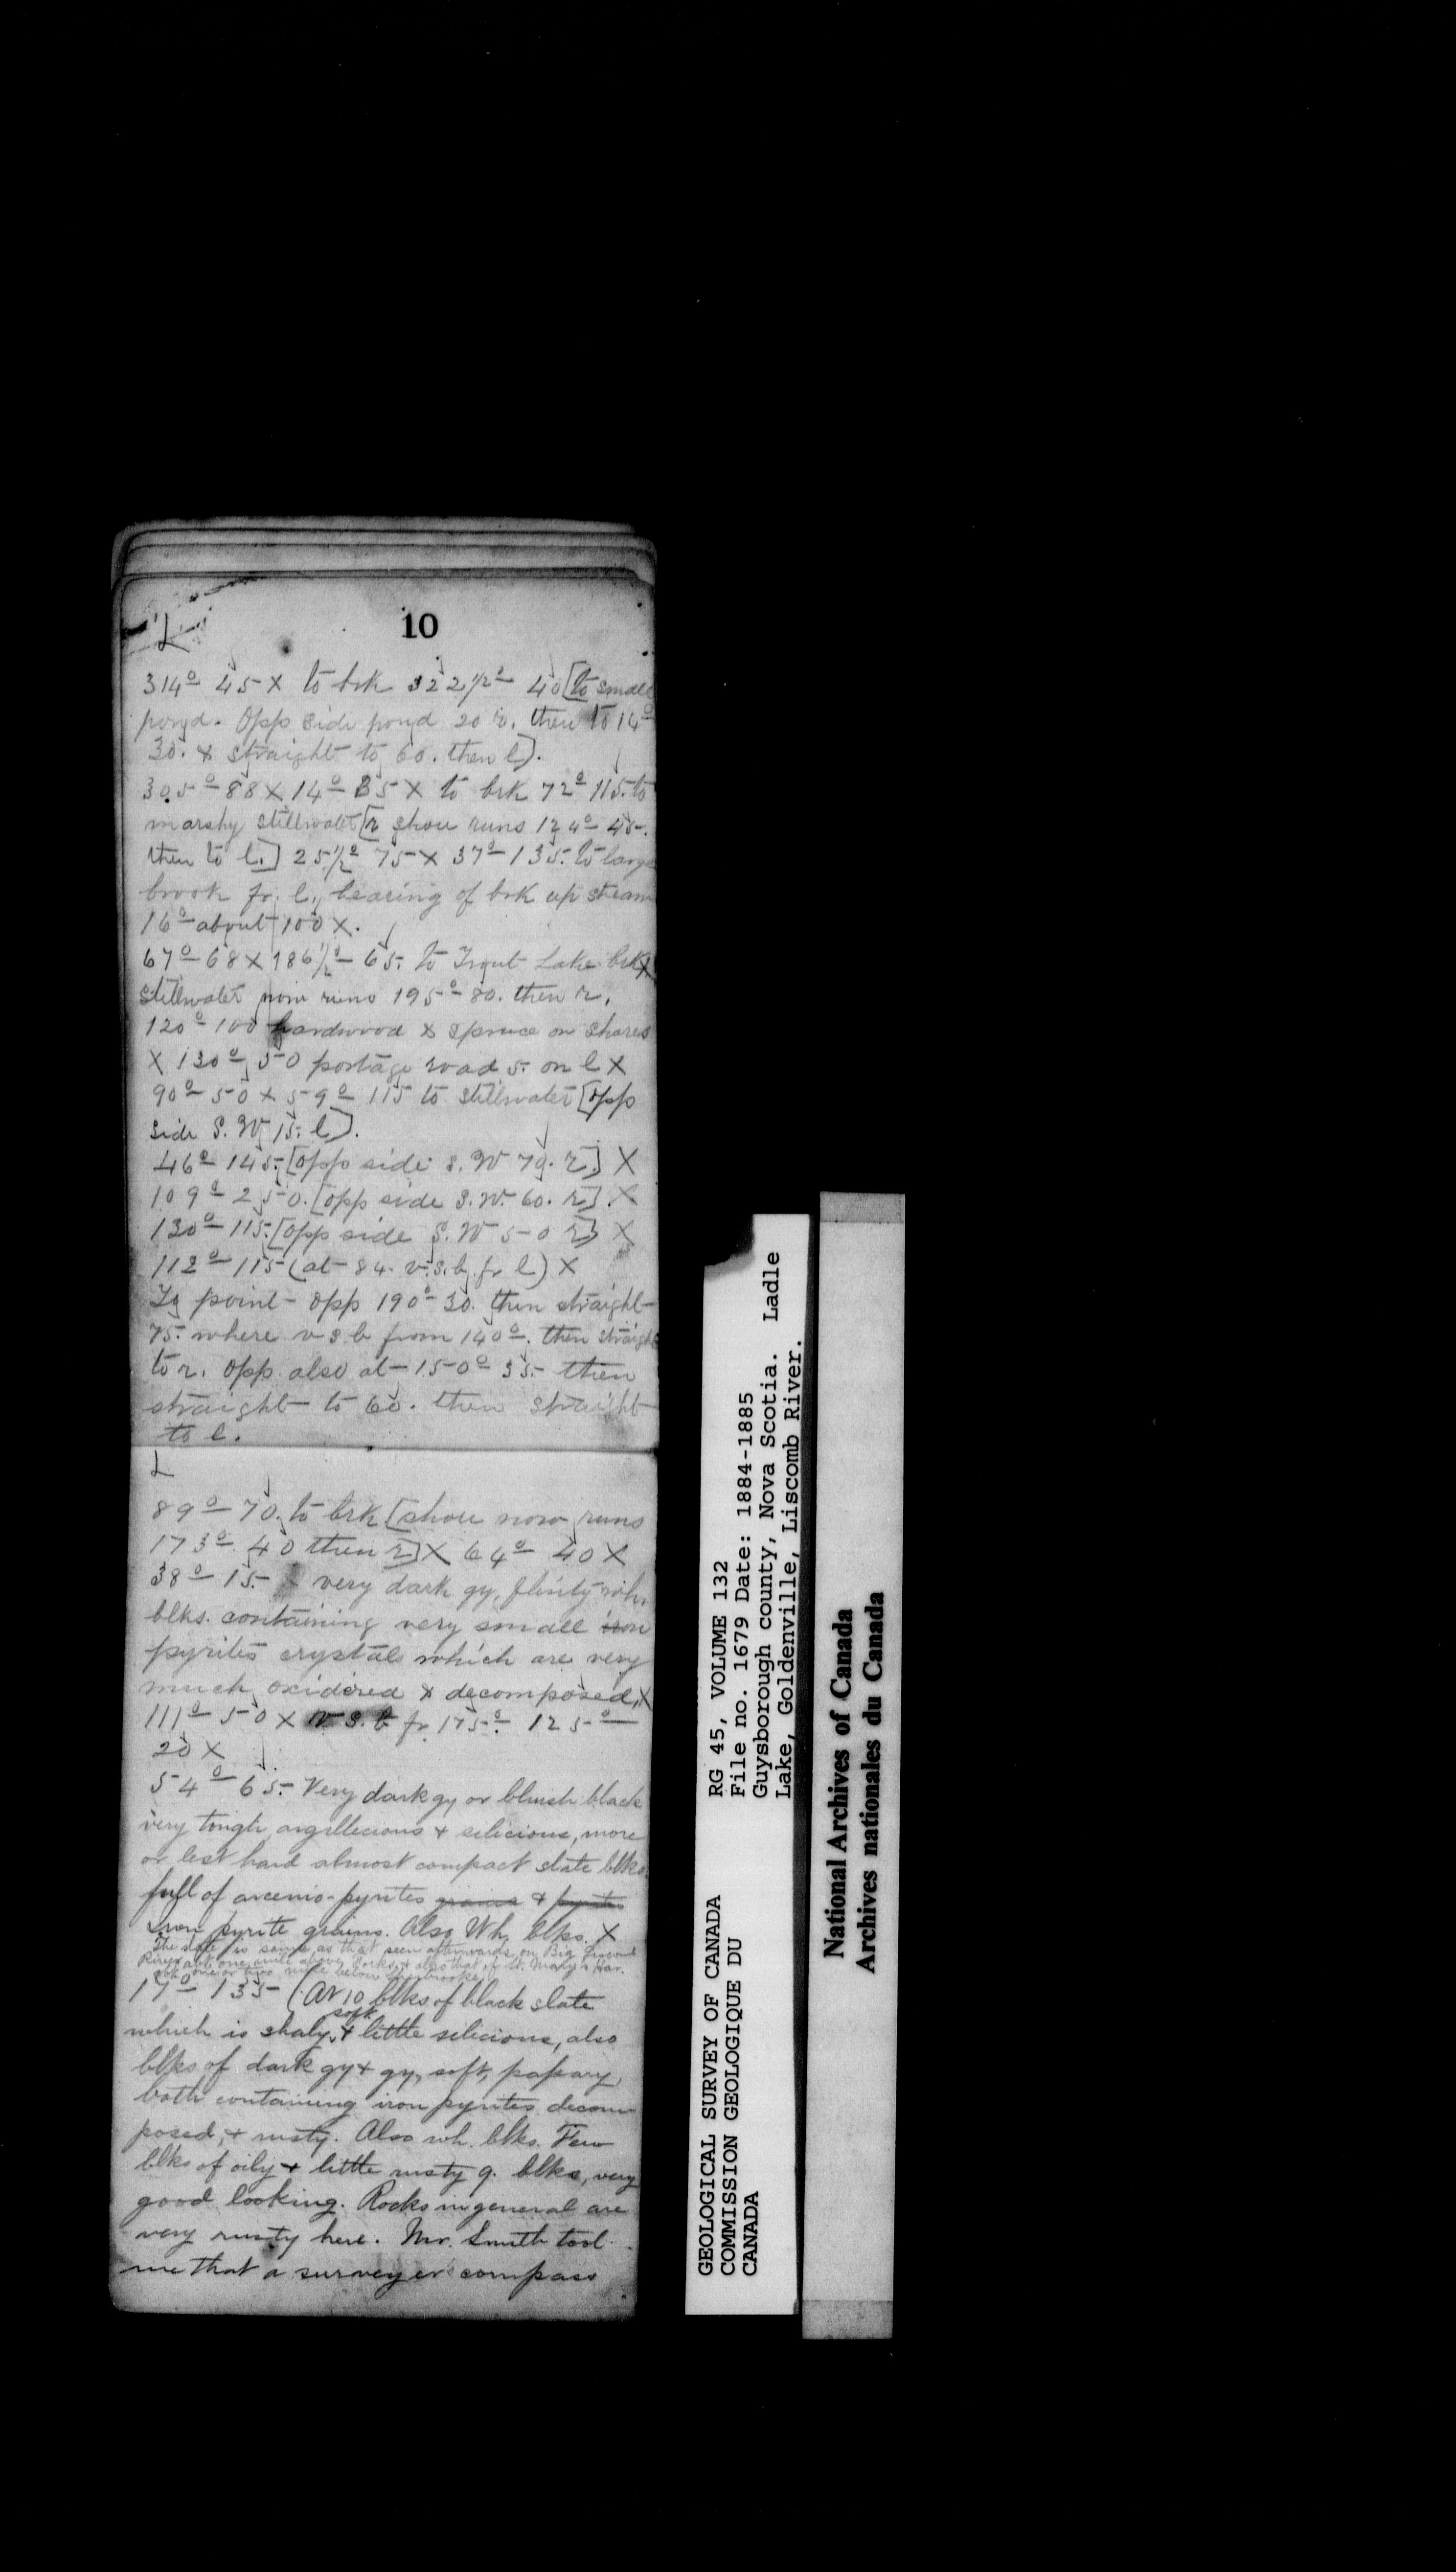 10
L
314° 45 X to brk 322 1/2° 40 [to small
pond. Opp side pond 20 r. then to 14°
30. & straight to 60. then l].
305° 88 X 14° 35 X to brk 72° 115. to
marshy stillwater [r shore runs 124° 45.
then to l.] 25 1/2° 75 X 37° 135. to large
brook fr. l., bearing of brk up stream
16° about 100 X.
67° 68 X 186 1/2° 65. to Trout Lake brk X
Stillwater now runs 195° 80. then r.
120° 100 hardwood & spruce on shores
X 130° 50 portage road 5. on l X
90° 50 X 59° 115 to stillwater [opp
side S.W 15. l].
46° 145. [opp side S.W 70. r.] X
109° 250. [opp side S.W. 60. r] X
130° 115. [opp side S.W 50 r] X
112° 115 (at 84. v.s.b. fr l) X
To point opp 190° 30. then straight
75. where v s b from 140°. then straight
to r. Opp. also at 150° 35. then
straight to 60. then straight
to l.
L
89° 70. to brk [shore now runs
173° 40 then r] X 64° 40 X
38° 15. very dark gy, flinty wh.
blks. containing very small iron
pyrites crystals which are very
much oxidired & decomposed, X
111° 50 X v s. b fr 175°. 125°
20 X
54° 65. Very dark gy or bluish black
very tough argillecious & silicious, more
or lest hard almost compact slate blks.
full of arcenio-pyrites grains & pyrites
Iron pyrite grains. Also Wh. blks. X
The slate is same as that seen afterwards on Big
River abt one mile above Forks, & also that of St. Mary's Bar.
abt one or two mile below Sherbrooke.
17° 135 (At 10 blks of black slate
soft
which is shaly, & little silicious, also
blks of dark gy & gy, soft, papary,
both containing iron pyrites decom
posed, & rusty. Also wh. blks. Few
blks of oily & little rusty q. blks, very
good looking. Rocks in general are
very rusty here. Mr. Smith tool
me that a surveyer compass
GEOLOGICAL SURVEY OF CANADA
COMMISSION GEOLOGIQUE DU
CANADA
RG 45, VOLUME 132
File no. 1679 Date: 1884-1885
Guysborough county, Nova Scotia. Ladle
Lake, Goldenville, Liscomb River.
National Archives of Canada
Archives nationales du Canada